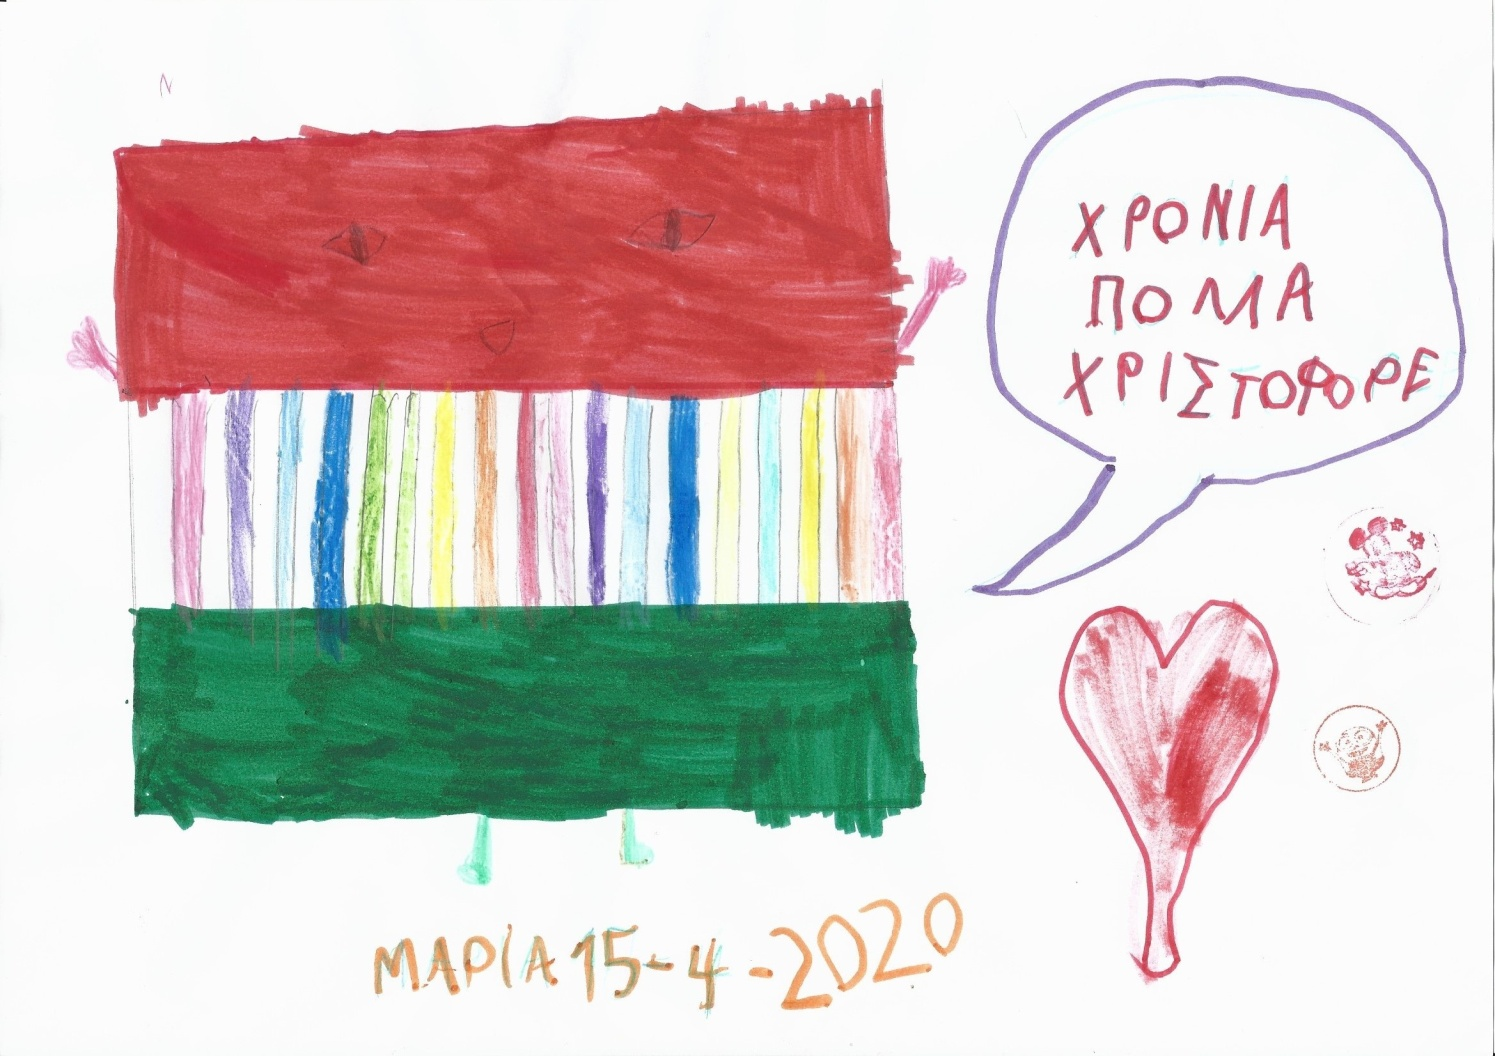 ΧΡΟΝΙΑ
ΠΟΜΑ
ΧΡΙΣΤΟΦΟΡΕ
ΜΑΡΙΑ 15-4-2020